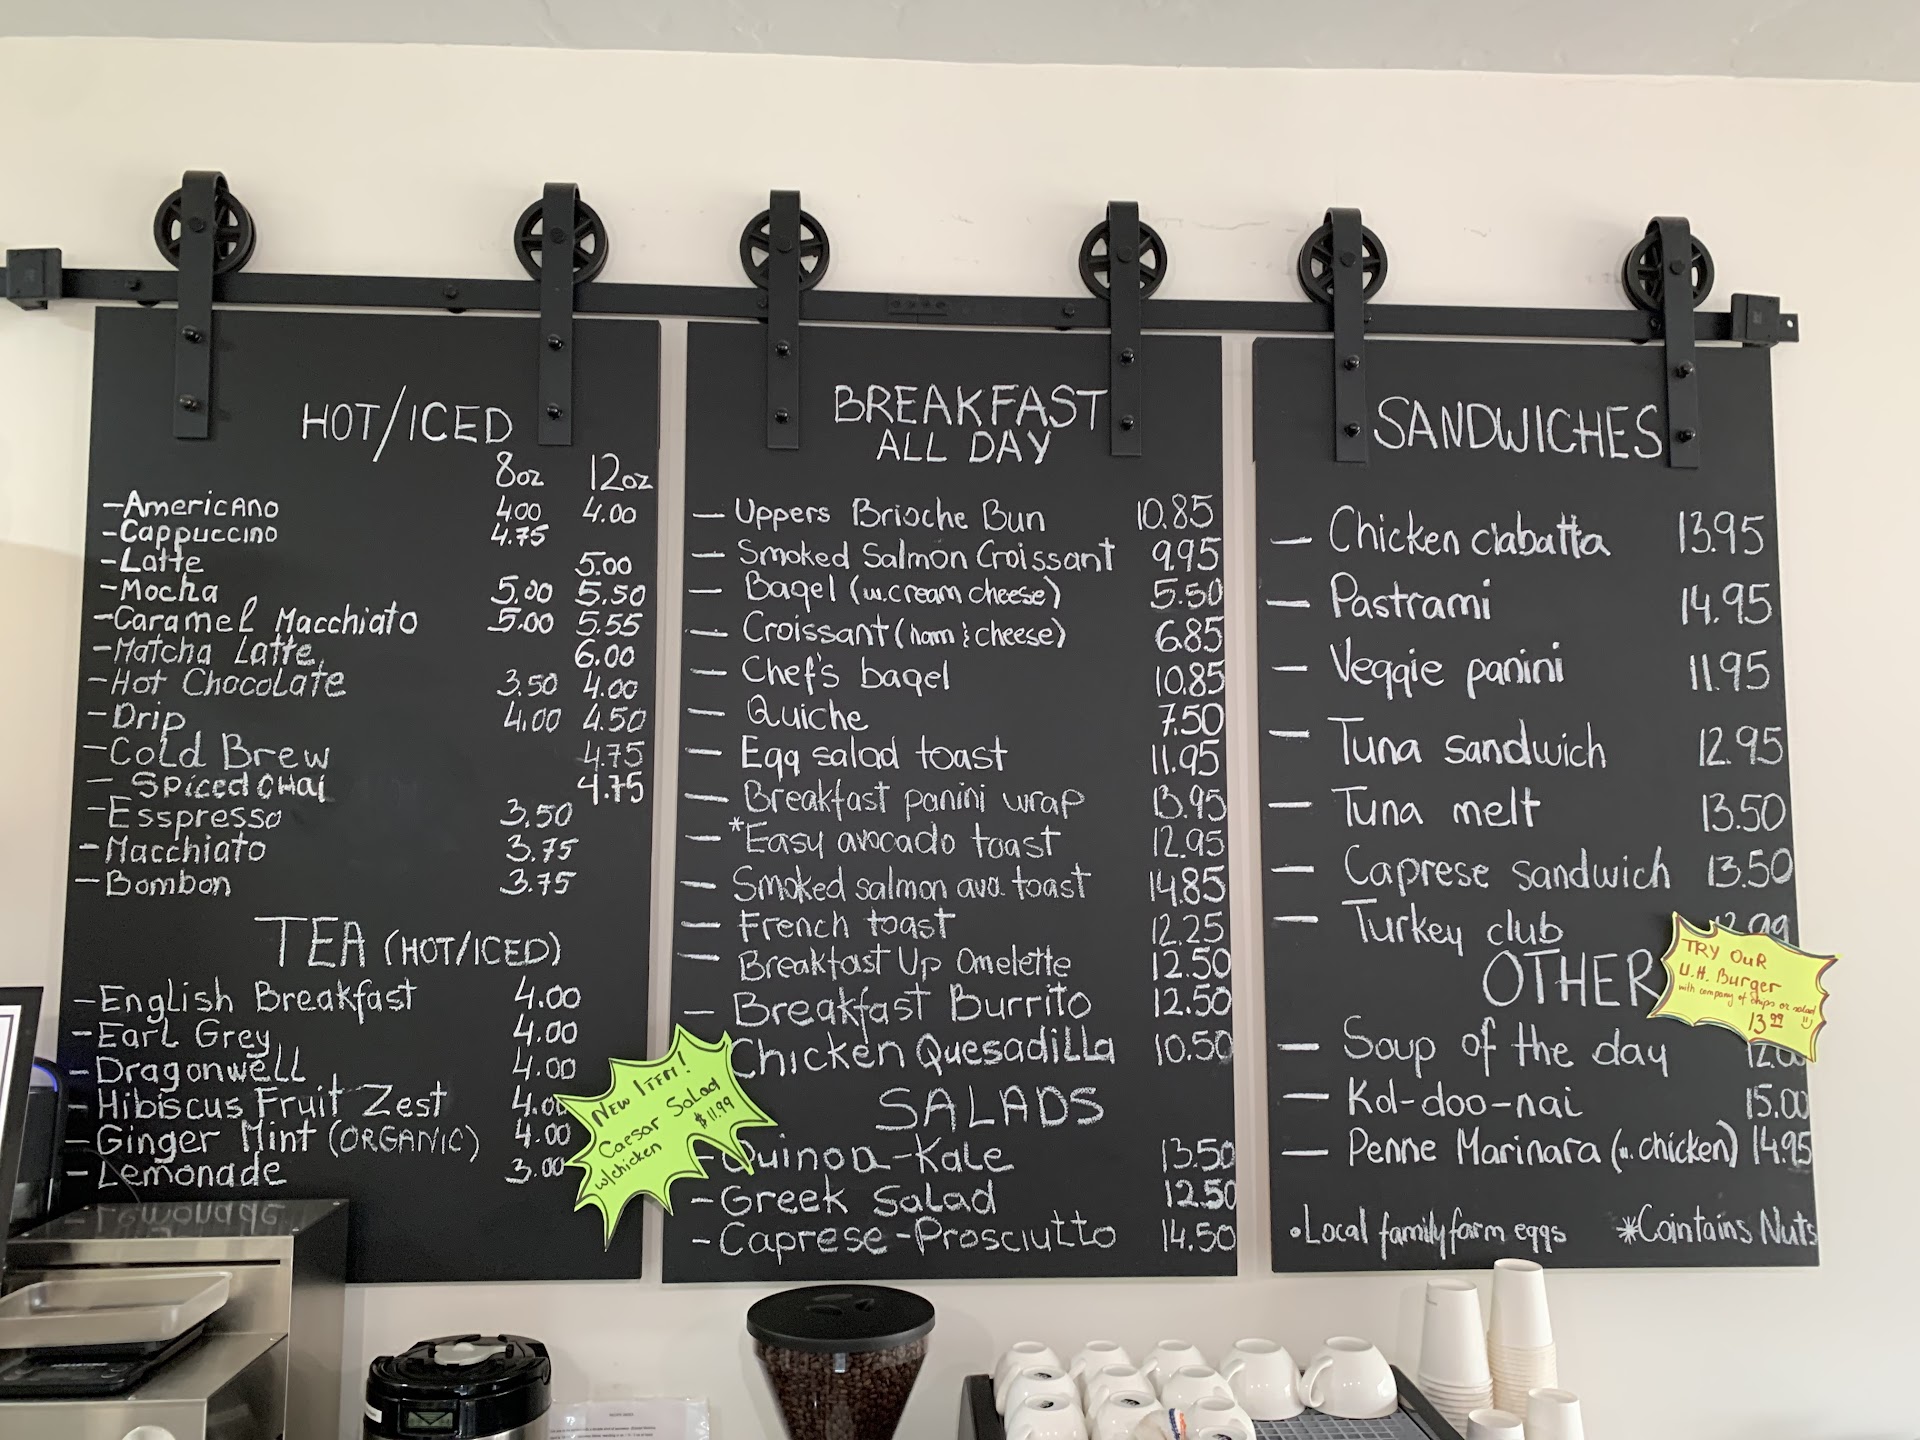 HOT/ICED
8oz 12oz
-Americano 4.00 4.00
-Cappuccino 4.75
-Latte 5.00
-Mocha 5.00 5.50
-Caramel Macchiato 5.00 5.55
-Matcha Latte 6.00
-Hot Chocolate 3.50 4.00
-Drip 4.00 4.50
-Cold Brew 4.75
- Spiced CHai 4.75
-Esspresso 3.50
-Macchiato 3.75
-Bombon 3.75
TEA (HOT/ICED)
-English Breakfast 4.00
-Earl Grey 4.00
-Dragonwell 4.00
-Hibiscus Fruit Zest 4.00
-Ginger Mint (ORGANIC) 4.00
-Lemonade 3.00
NEW ITEM!
Caesar Salad
w/chicken $11.99
BREAKFAST
ALL DAY
- Uppers Brioche Bun 10.85
- Smoked Salmon Croissant 9.95
- Bagel (w.cream cheese) 5.50
- Croissant (ham & cheese) 6.85
- Chef's bagel 10.85
- Quiche 7.50
- Egg salad toast 11.95
- Breakfast panini wrap 13.95
- *Easy avocado toast 12.95
- Smoked salmon avo. toast 14.85
- French toast 12.25
- Breakfast Up Omelette 12.50
- Breakfast Burrito 12.50
Chicken Quesadilla 10.50
SALADS
-Quinoa-Kale 13.50
-Greek Salad 12.50
-Caprese-Prosciutto 14.50
SANDWICHES
- Chicken ciabatta 13.95
- Pastrami 14.95
- Veggie panini 11.95
- Tuna sandwich 12.95
- Tuna melt 13.50
- Caprese sandwich 13.50
- Turkey club
OTHER
TRY OUR
U.H. Burger
with company of chips or salad
13.99
- Soup of the day 12.00
- Kol-doo-nai 15.00
- Penne Marinara (w. chicken) 14.95
•Local family farm eggs *Cointains Nuts